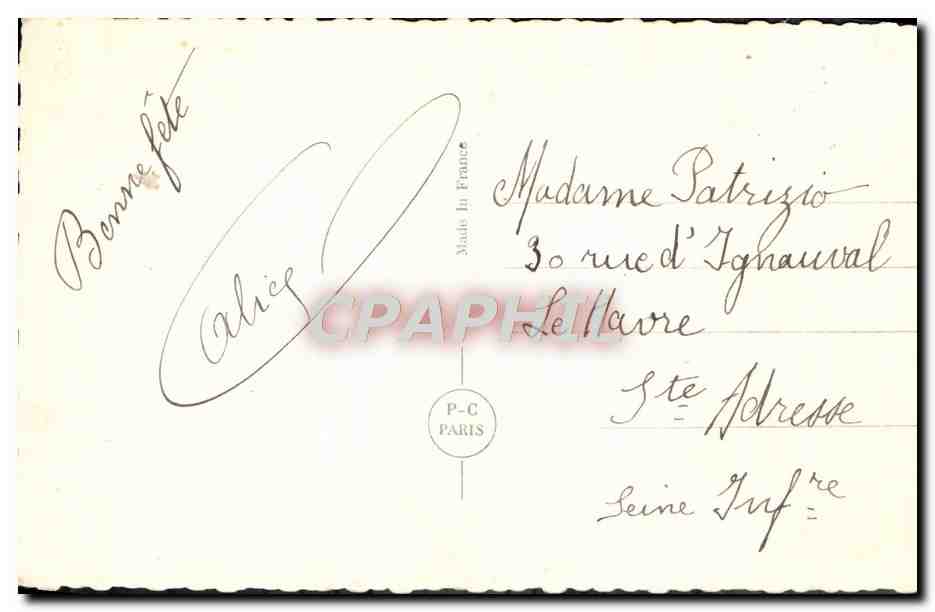 Bonne fête
alice
Made in France
CPAPHIL
P-C
PARIS
Madame Patrizio
30 rue d'Ignauval
Le Havre
Ste Adresse
Seine Infre